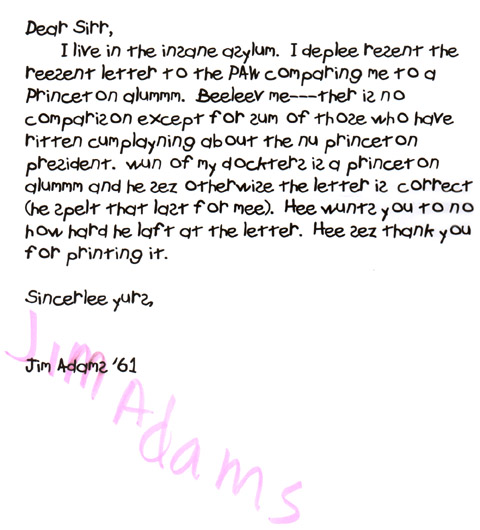 Dear Sirr,
I live in the insane asylum. I deplee resent the
reesent letter to the PAW comparing me to a
Princeton alummm. Beeleev me---ther is no
comparison except for sum of those who have
ritten cumplayning about the nu princeton
president. wun of my dockters is a princeton
alummm and he sez otherwise the letter is correct
(he spelt that last for mee). Hee wunts you to no
how hard he laft at the letter. Hee sez thank you
for printing it.
Sincerlee yurs,
Jim Adams '61
Jim Adams